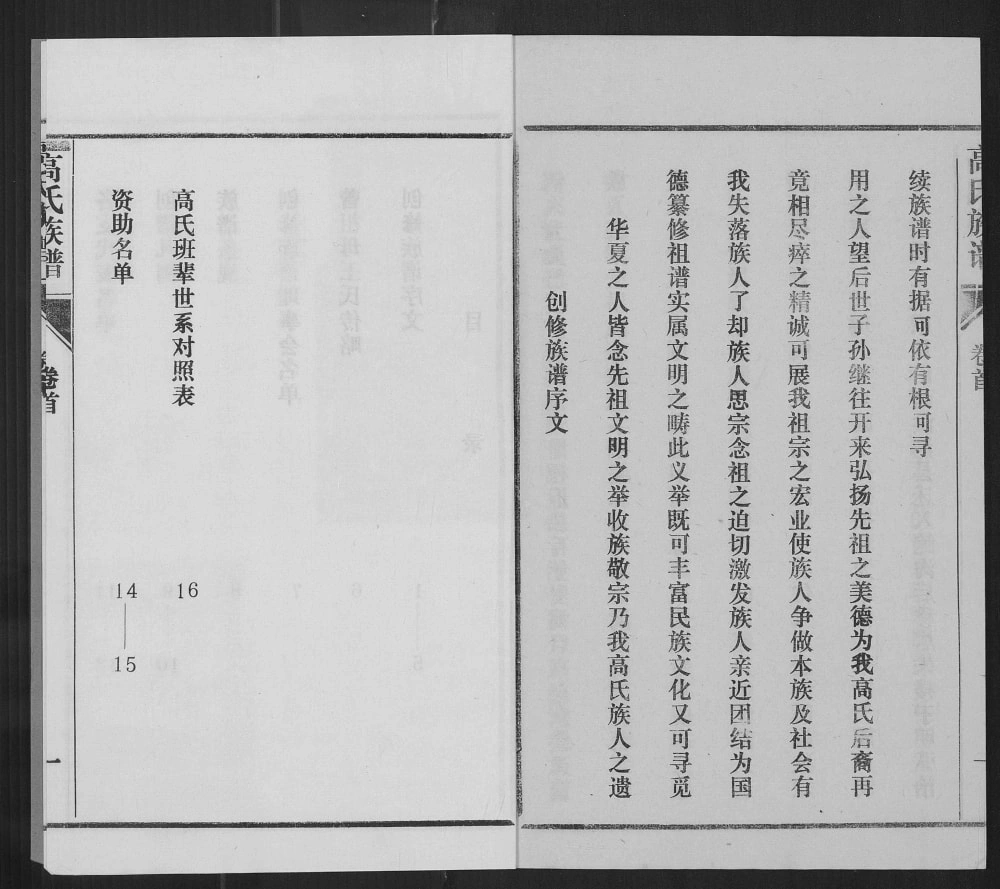 高氏族谱
卷首
一
资助名单 14—15
高氏班辈世系对照表 16
创修族谱序文
华夏之人皆念先祖文明之举收族敬宗乃我高氏族人之遗
德纂修祖谱实属文明之畴此义举既可丰富民族文化又可寻觅
我失落族人了却族人思宗念祖之迫切激发族人亲近团结为国
竟相尽瘁之精诚可展我祖宗之宏业使族人争做本族及社会有
用之人望后世子孙继往开来弘扬先祖之美德为我高氏后裔再
续族谱时有据可依有根可寻
高氏族谱
卷首
一